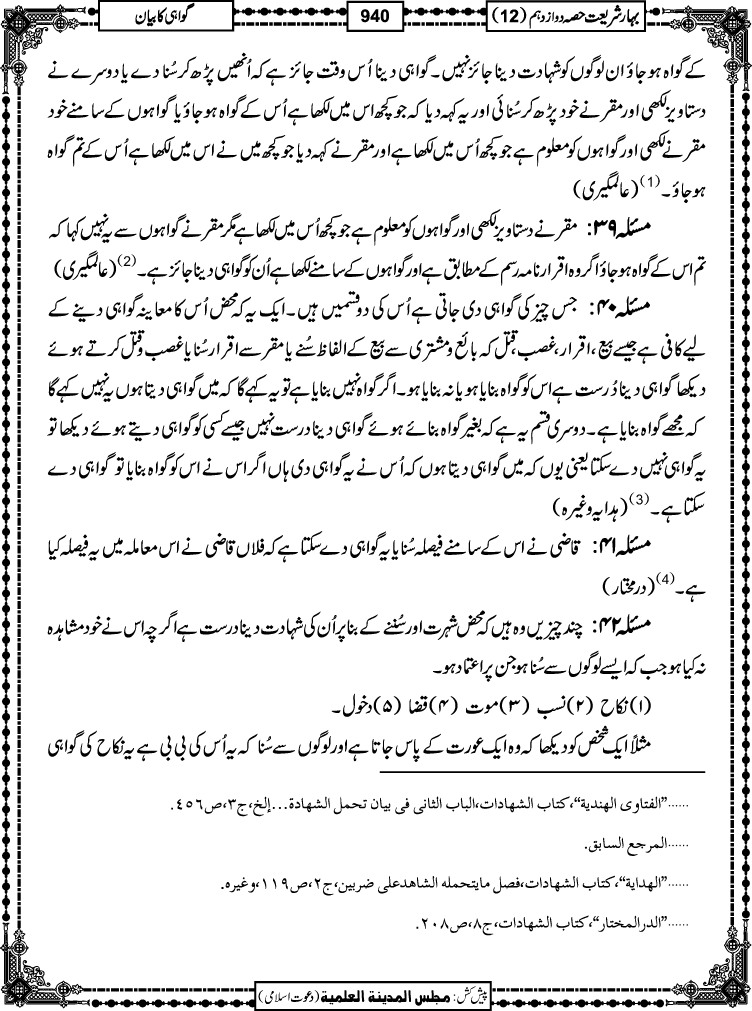 بہارِ شریعت حصہ دوازدہم (12)
940
گواہی کا بیان
کے گواہ ہو جاؤ ان لوگوں کو شہادت دینا جائز نہیں۔ گواہی دینا اُس وقت جائز ہے کہ اُنھیں پڑھ کر سُنا دے یا دوسرے نے
دستاویز لکھی اور مقر نے خود پڑھ کر سُنائی اور یہ کہہ دیا کہ جو کچھ اس میں لکھا ہے اُس کے گواہ ہو جاؤ یا گواہوں کے سامنے خود
مقر نے لکھی اور گواہوں کو معلوم ہے جو کچھ اُس میں لکھا ہے اور مقر نے کہہ دیا جو کچھ میں نے اس میں لکھا ہے اُس کے تم گواہ
ہو جاؤ۔(1) (عالمگیری)
مسئلہ ۳۹: مقر نے دستاویز لکھی اور گواہوں کو معلوم ہے جو کچھ اُس میں لکھا ہے مگر مقر نے گواہوں سے یہ نہیں کہا کہ
تم اس کے گواہ ہو جاؤ اگر وہ اقرار نامہ رسم کے مطابق ہے اور گواہوں کے سامنے لکھا ہے اُن کو گواہی دینا جائز ہے۔(2) (عالمگیری)
مسئلہ ۴۰: جس چیز کی گواہی دی جاتی ہے اُس کی دو قسمیں ہیں۔ ایک یہ کہ محض اُس کا معاینہ گواہی دینے کے
لیے کافی ہے جیسے بیع، اقرار، غصب، قتل کہ بائع و مشتری سے بیع کے الفاظ سُنے یا مقر سے اقرار سُنا یا غصب و قتل کرتے ہوئے
دیکھا گواہی دینا دُرست ہے اس کو گواہ بنایا ہو یا نہ بنایا ہو۔ اگر گواہ نہیں بنایا ہے تو یہ کہے گا کہ میں گواہی دیتا ہوں یہ نہیں کہے گا
کہ مجھے گواہ بنایا ہے۔ دوسری قسم یہ ہے کہ بغیر گواہ بنائے ہوئے گواہی دینا درست نہیں جیسے کسی کو گواہی دیتے ہوئے دیکھا تو
یہ گواہی نہیں دے سکتا یعنی یوں کہ میں گواہی دیتا ہوں کہ اُس نے یہ گواہی دی ہاں اگر اس نے اس کو گواہ بنایا تو گواہی دے
سکتا ہے۔(3) (ہدایہ وغیرہ)
مسئلہ ۴۱: قاضی نے اس کے سامنے فیصلہ سُنایا یہ گواہی دے سکتا ہے کہ فلاں قاضی نے اس معاملہ میں یہ فیصلہ کیا
ہے۔(4) (درمختار)
مسئلہ ۴۲: چند چیزیں وہ ہیں کہ محض شہرت اور سُننے کے بنا پر اُن کی شہادت دینا درست ہے اگرچہ اس نے خود مشاہدہ
نہ کیا ہو جب کہ ایسے لوگوں سے سُنا ہو جن پر اعتماد ہو۔
(۱) نکاح (۲) نسب (۳) موت (۴) قضا (۵) دخول۔
مثلاً ایک شخص کو دیکھا کہ وہ ایک عورت کے پاس جاتا ہے اور لوگوں سے سُنا کہ یہ اُس کی بی بی ہے یہ نکاح کی گواہی
......"الفتاوی الھندیۃ"، کتاب الشھادات، الباب الثانی فی بیان تحمل الشھادۃ...إلخ، ج۳، ص۴۵۶.
......المرجع السابق.
......"الھدایۃ"، کتاب الشھادات، فصل مایتحملہ الشاھدعلی ضربین، ج۲، ص۱۱۹، وغیرہ.
......"الدرالمختار"، کتاب الشھادات، ج۸، ص۲۰۸.
پیش کش: مجلس المدینۃ العلمیۃ (دعوت اسلامی)